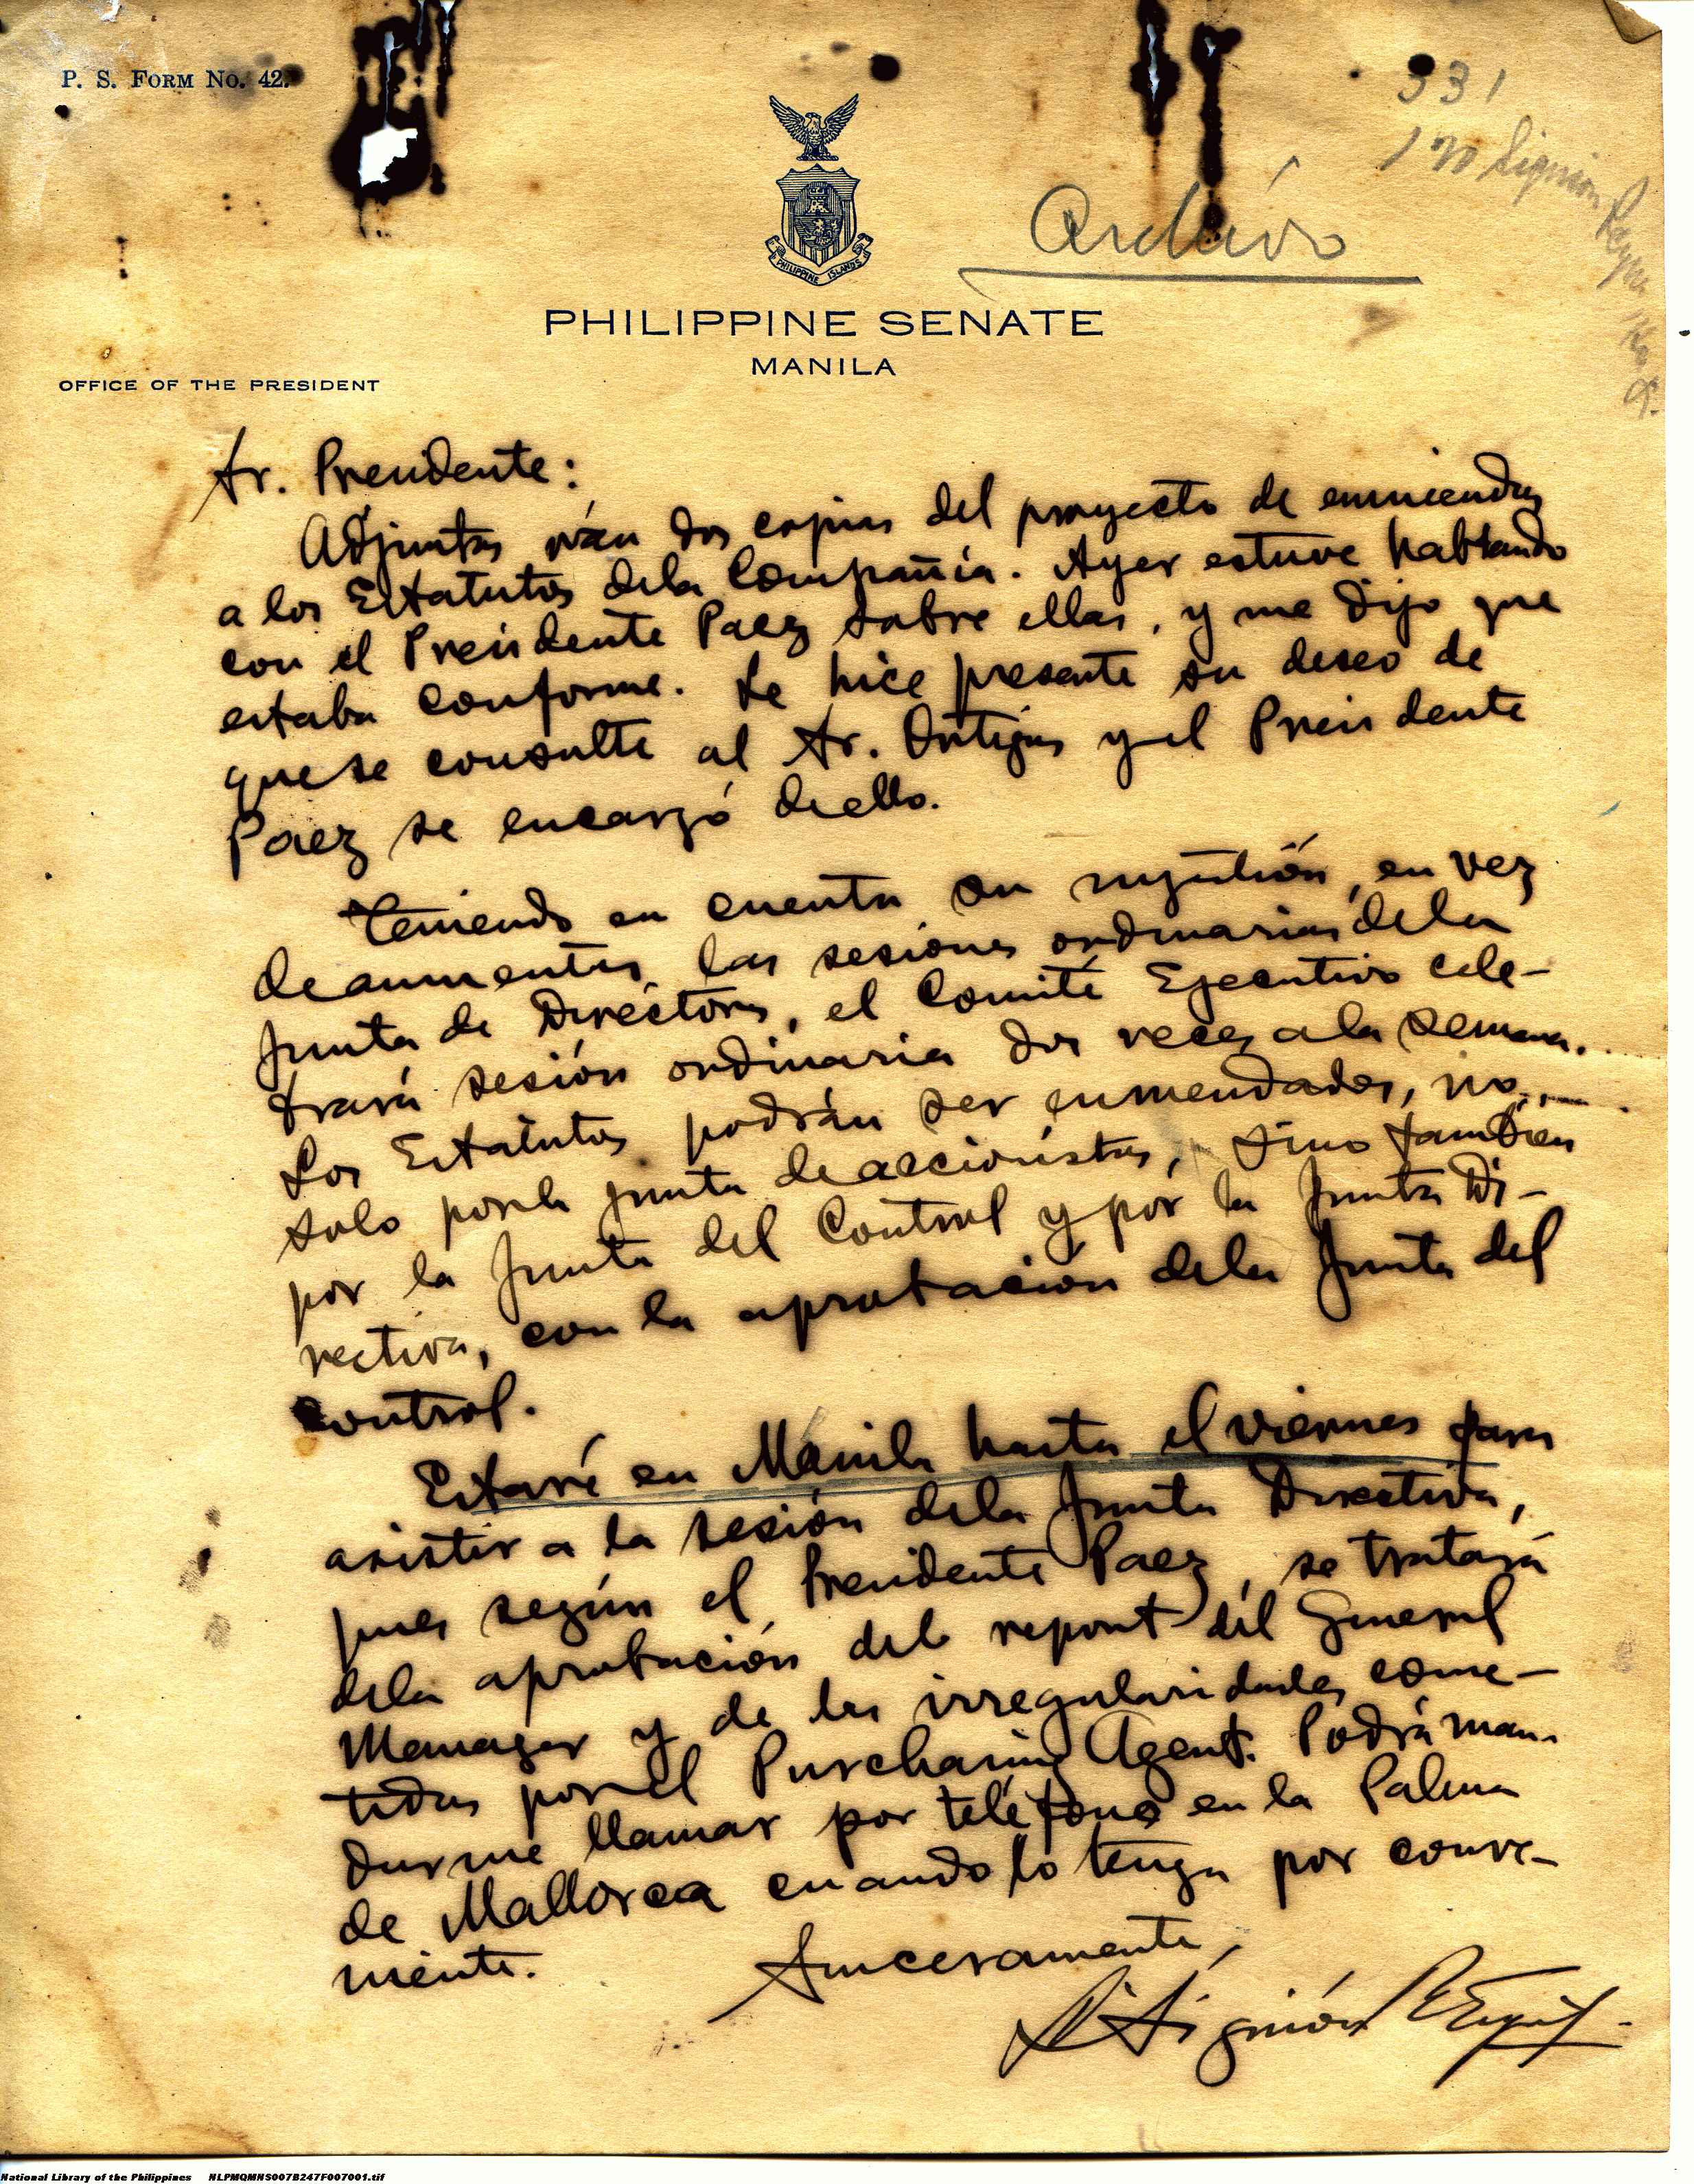 P. S. FORM NO. 42.
331
Archivo
PHILIPPINE ISLANDS
PHILIPPINE SENATE
MANILA
OFFICE OF THE PRESIDENT
Sr. Presidente:
Adjuntas van dos copias del proyecto de enmiendas
a los Estatutos dela Compañía. Ayer estuve hablando
con el Presidente Paez sobre ellas, y me dijo que
estaba conforme. Le hice presente su deseo de
que se consulte al Sr. Ortigas y el Presidente
Paez se encargó de ello.
Teniendo en cuenta su sugestión, en vez
de aumentar las sesiones ordinarias dela
Junta de Directores, el Comité Ejecutivo cele-
brará sesión ordinaria dos veces a la semana.
Los Estatutos podrán ser enmendados, no
solo por la junta de accionistas, sino tambien
por la Junta del Control y por la Junta Di-
rectiva, con la aprobación dela Junta del
Control.
Estaré en Manila hasta el viernes para
asistir a la sesión dela Junta Directiva,
pues según el Presidente Paez, se tratará
dela aprobación del report del General
Manager y de las irregularidades come-
tidas por el Purchasing Agent. Podrá man-
darme llamar por teléfono en la Palma
de Mallorca cuando lo tenga por conve-
niente.
Sinceramente,
National Library of the Philippines NLPMQMNS007B247F007001.tif